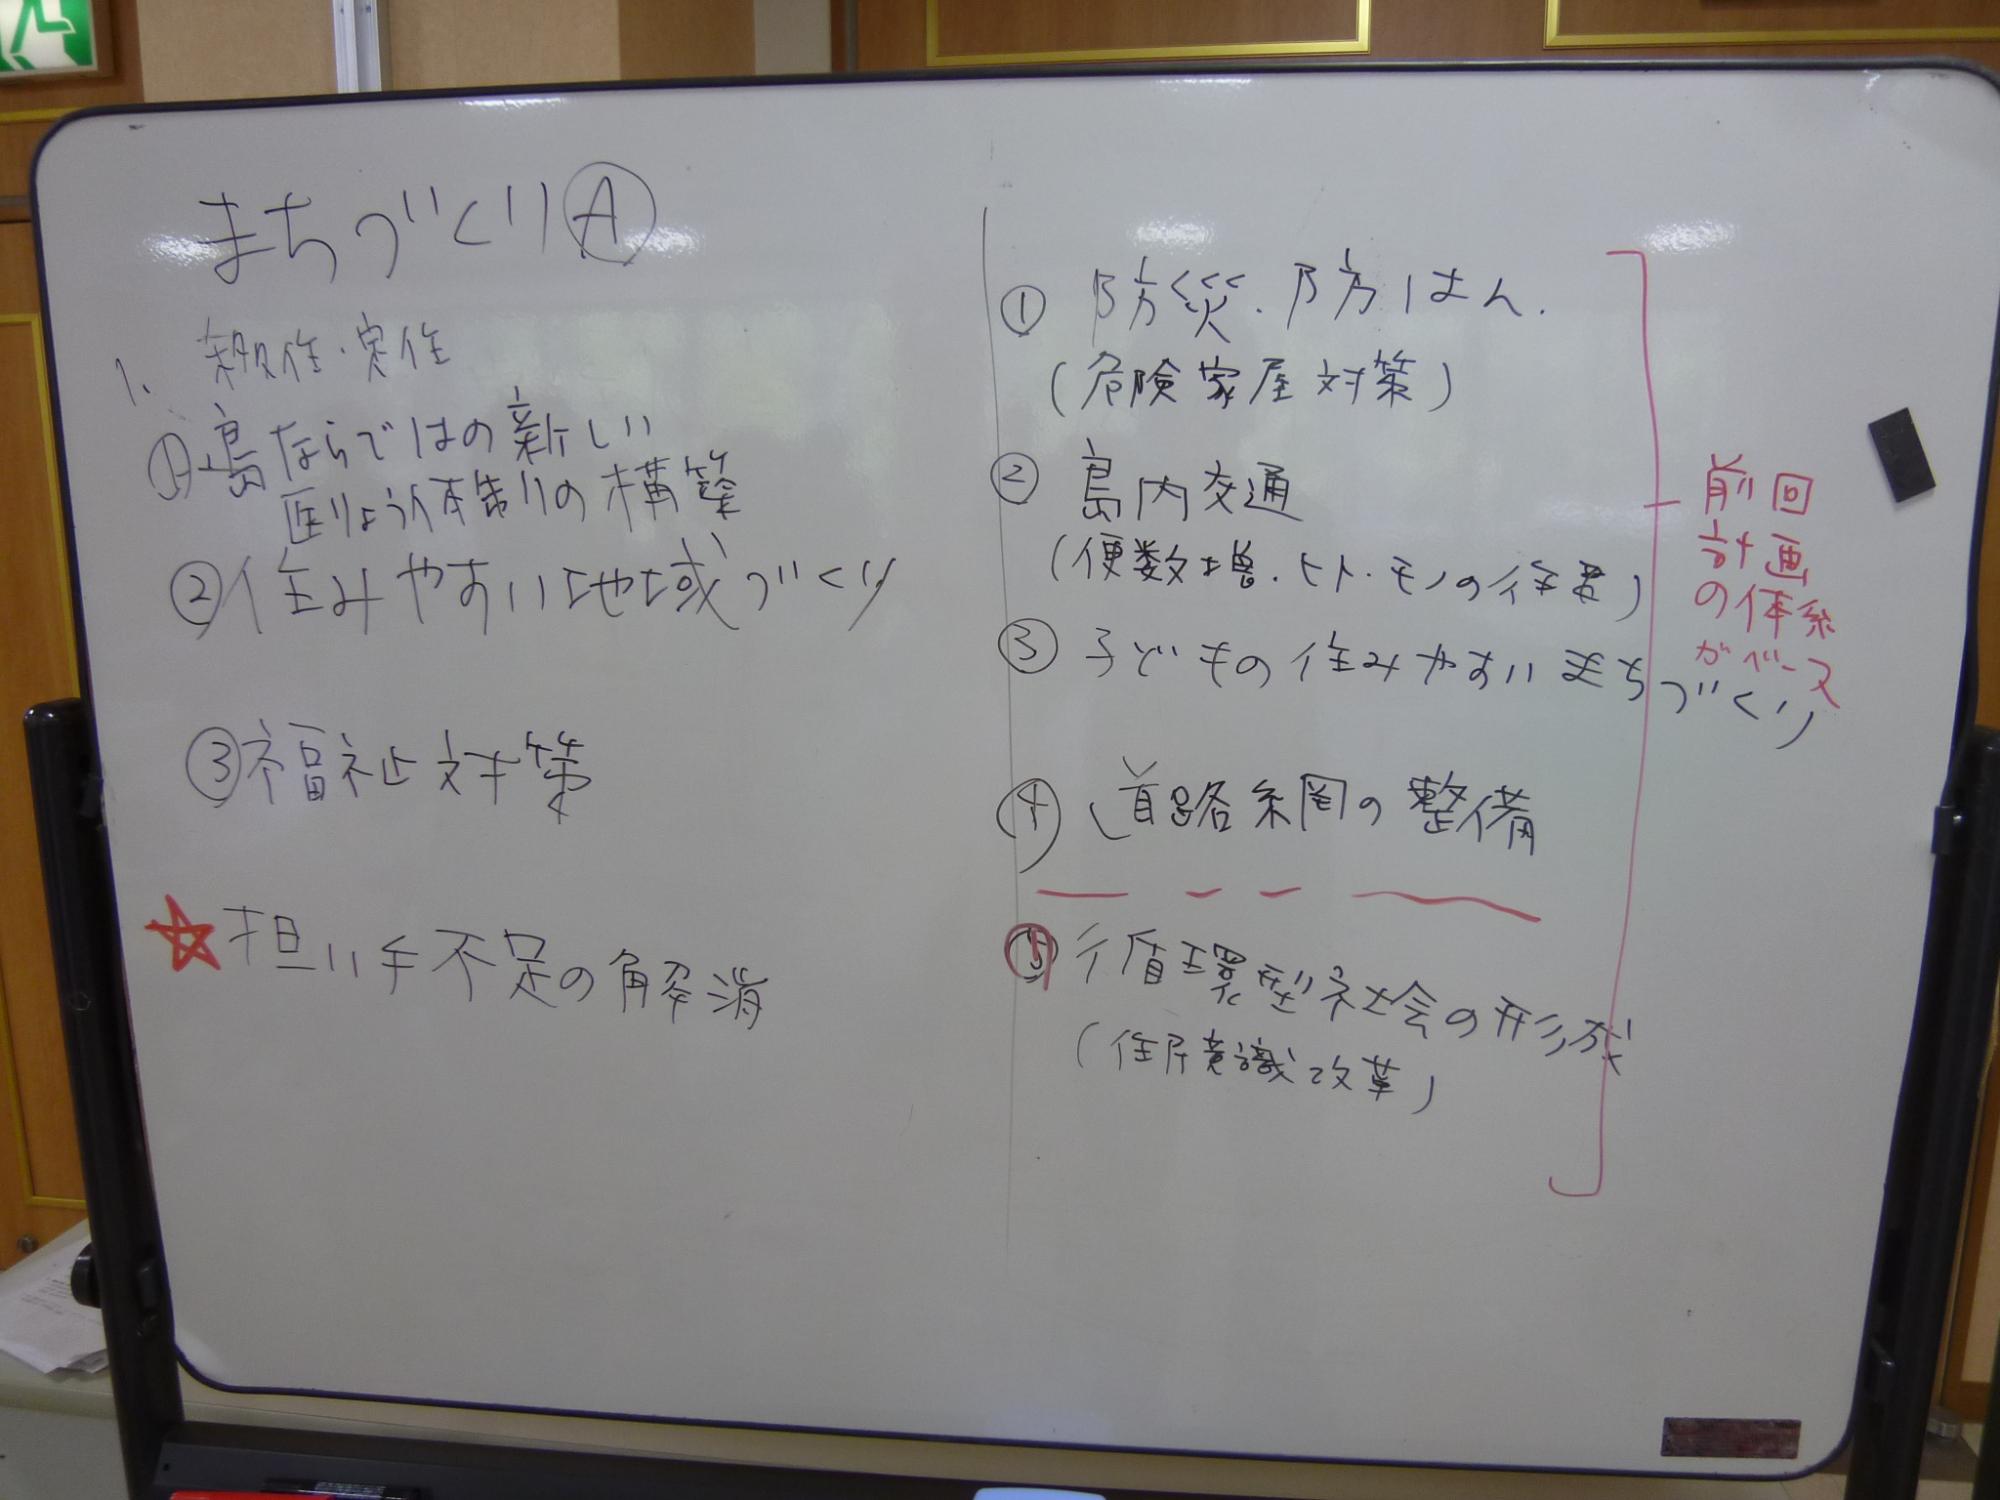 まちづくり Ⓐ
1. 移住・定住
① 島ならではの新しい
医りょう体制の構築
② 住みやすい地域づくり
③ 福祉対策
☆ 担い手不足の解消
① 防災・防はん.
(危険家屋対策)
② 島内交通
(便数増・ヒト・モノの往来)
③ 子どもの住みやすいまちづくり
④ 道路網の整備
⑤ 循環型社会の形成
(住民意識改革)
前回
計画
の体系
がベース